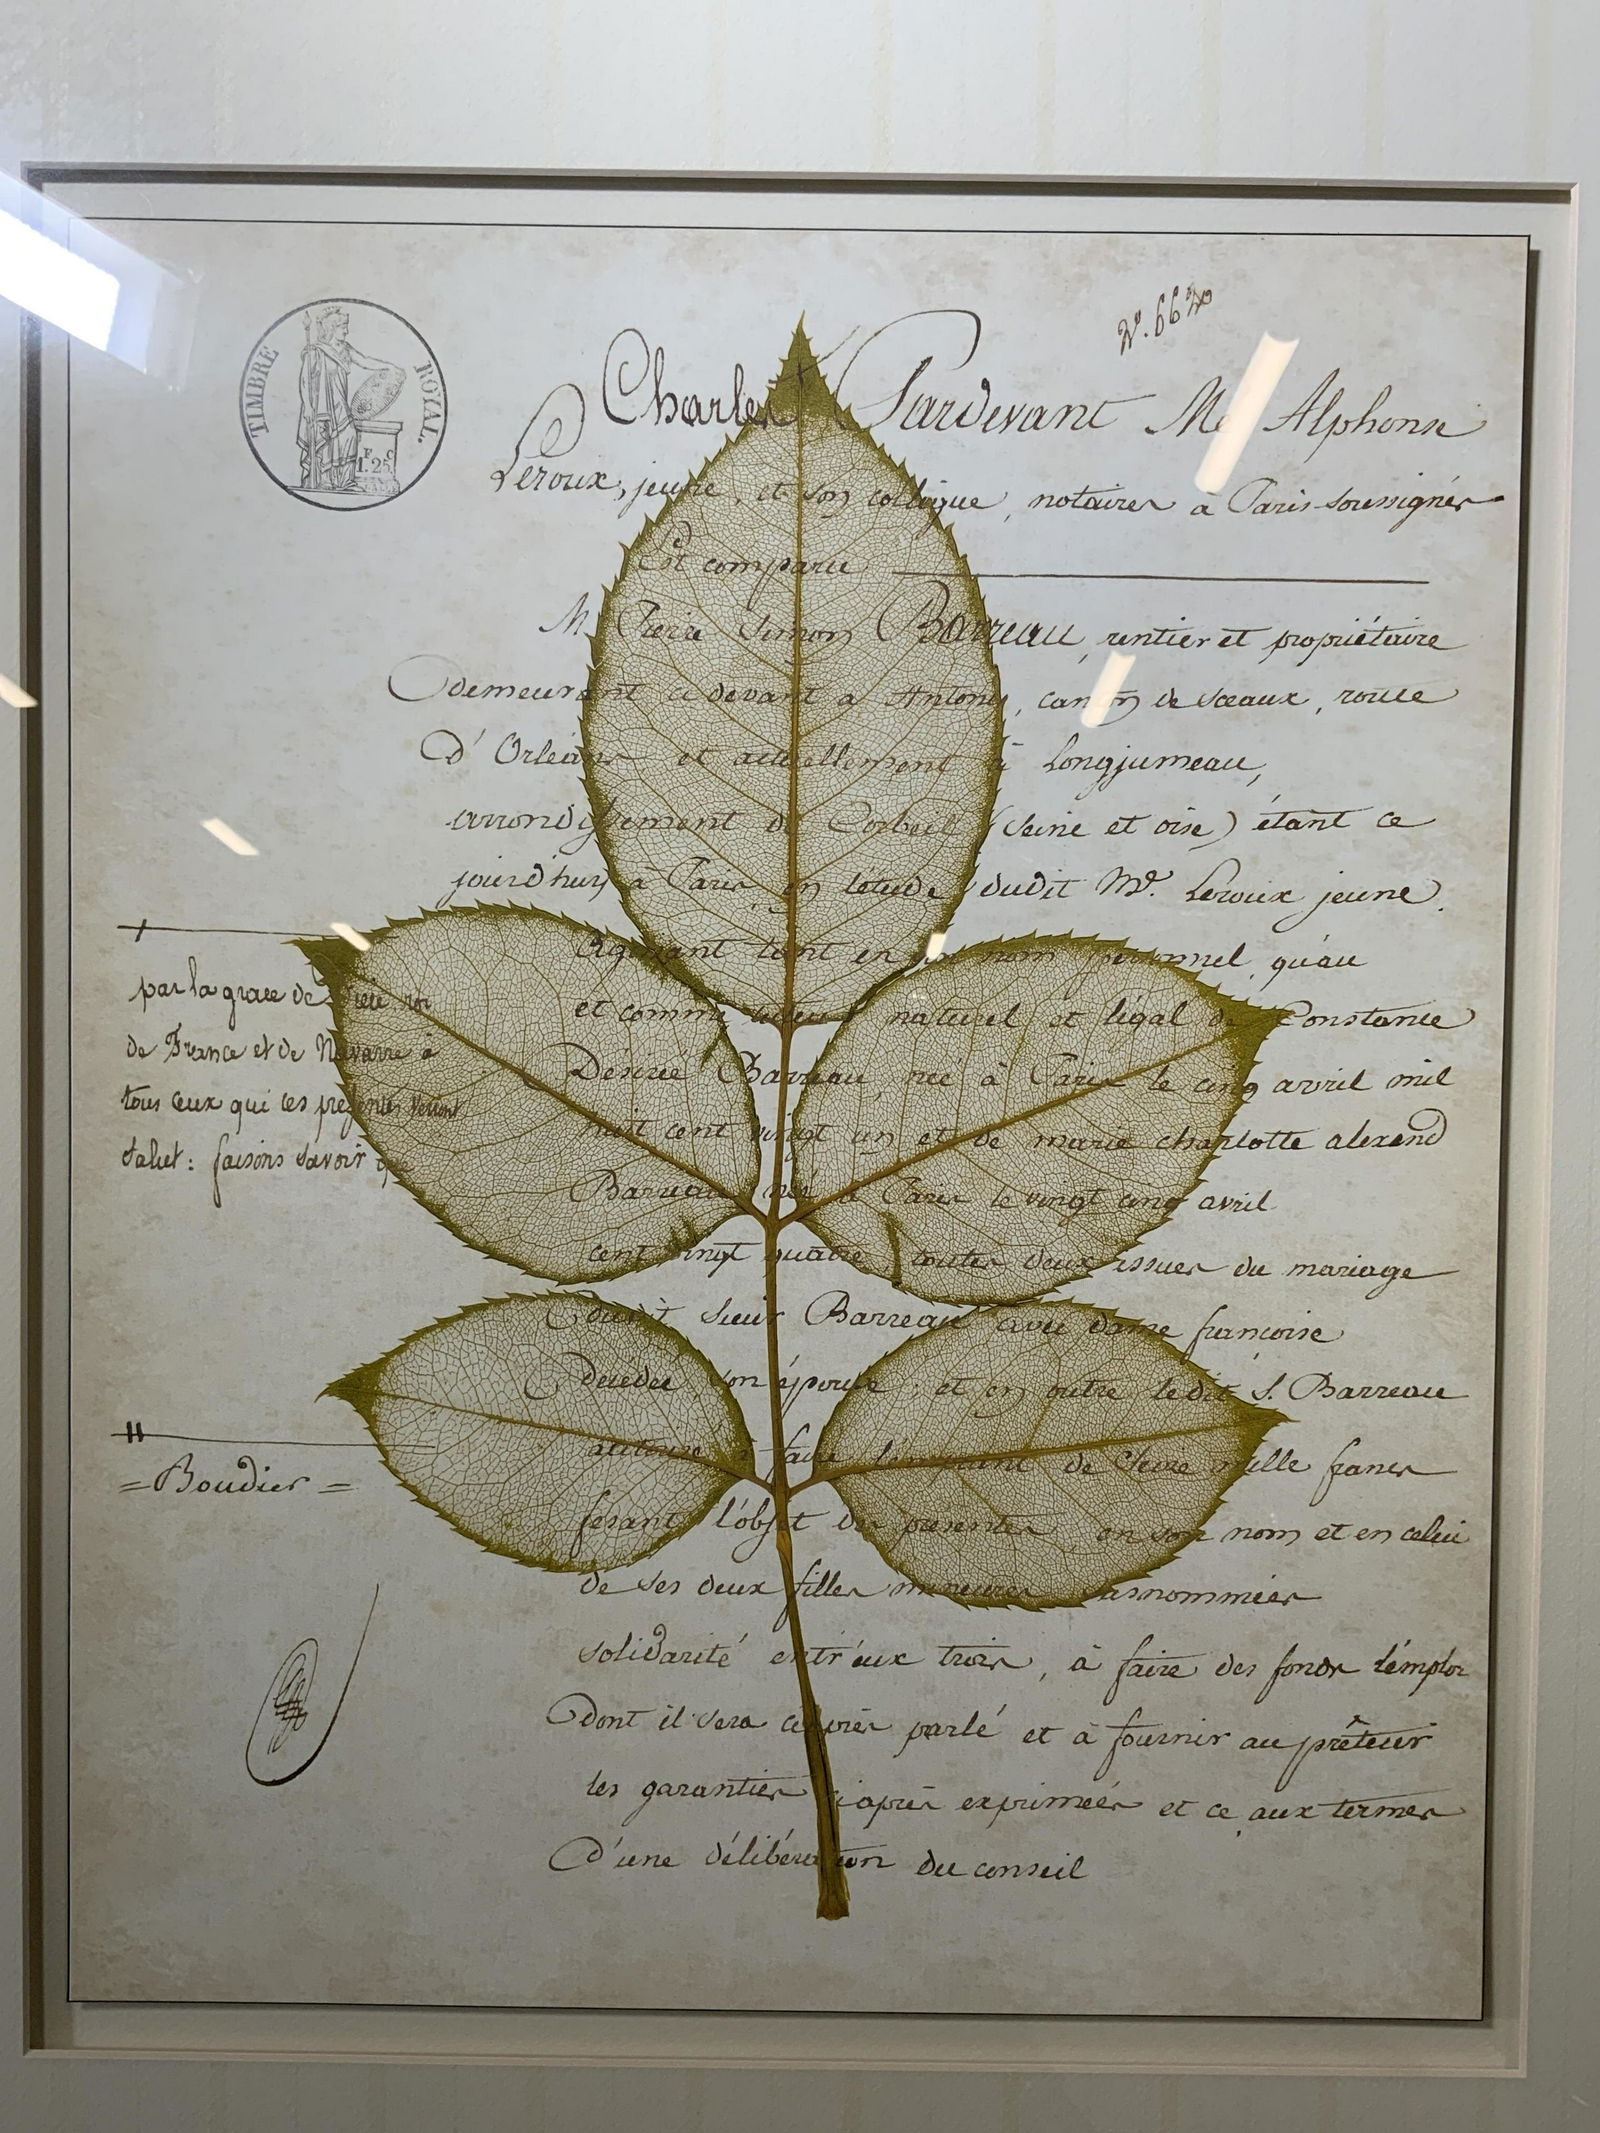 TIMBRE ROYAL.
F C
1.25
Charles Pardevant Me Alphonse
Leroux, jeune, et son collègue, notaires à Paris soussignés
Est comparu
M. Pierre Simon Barreau, rentier et propriétaire
demeurant ci devant a Antony, canton de sceaux, route
d'Orléans et actuellement à Longjumeau,
arrondissement de Corbeil (seine et oise) étant ce
jourd'huy à Paris en létude dudit Me. Leroux jeune.
Agissant tant en son nom personnel qu'au
et comme tuteur naturel et légal de Constance
Désirée Barreau, née à Paris le cinq avril mil
huit cent vingt un et de marie charlotte alexand
Barreau née à Paris le vingt cinq avril
cent vingt quatre, toutes deux issues du mariage
dudit sieur Barreau avec dame françoise
décédée, son épouse, et en outre ledit S. Barreau
autorisé à faire l'emprunt de mille francs
fesant l'objet des présentes, en son nom et en celui
de ses deux filles mineures susnommées
solidarité entr'eux trois, à faire des fonds l'emploi
dont il sera ci après parlé et à fournir au prêteur
les garanties ci après exprimées et ce aux termes
d'une délibération du conseil
par la grace de Dieu roi
de France et de Navarre à
tous ceux qui ces présentes verront
Salut : faisons savoir que
= Boudier =